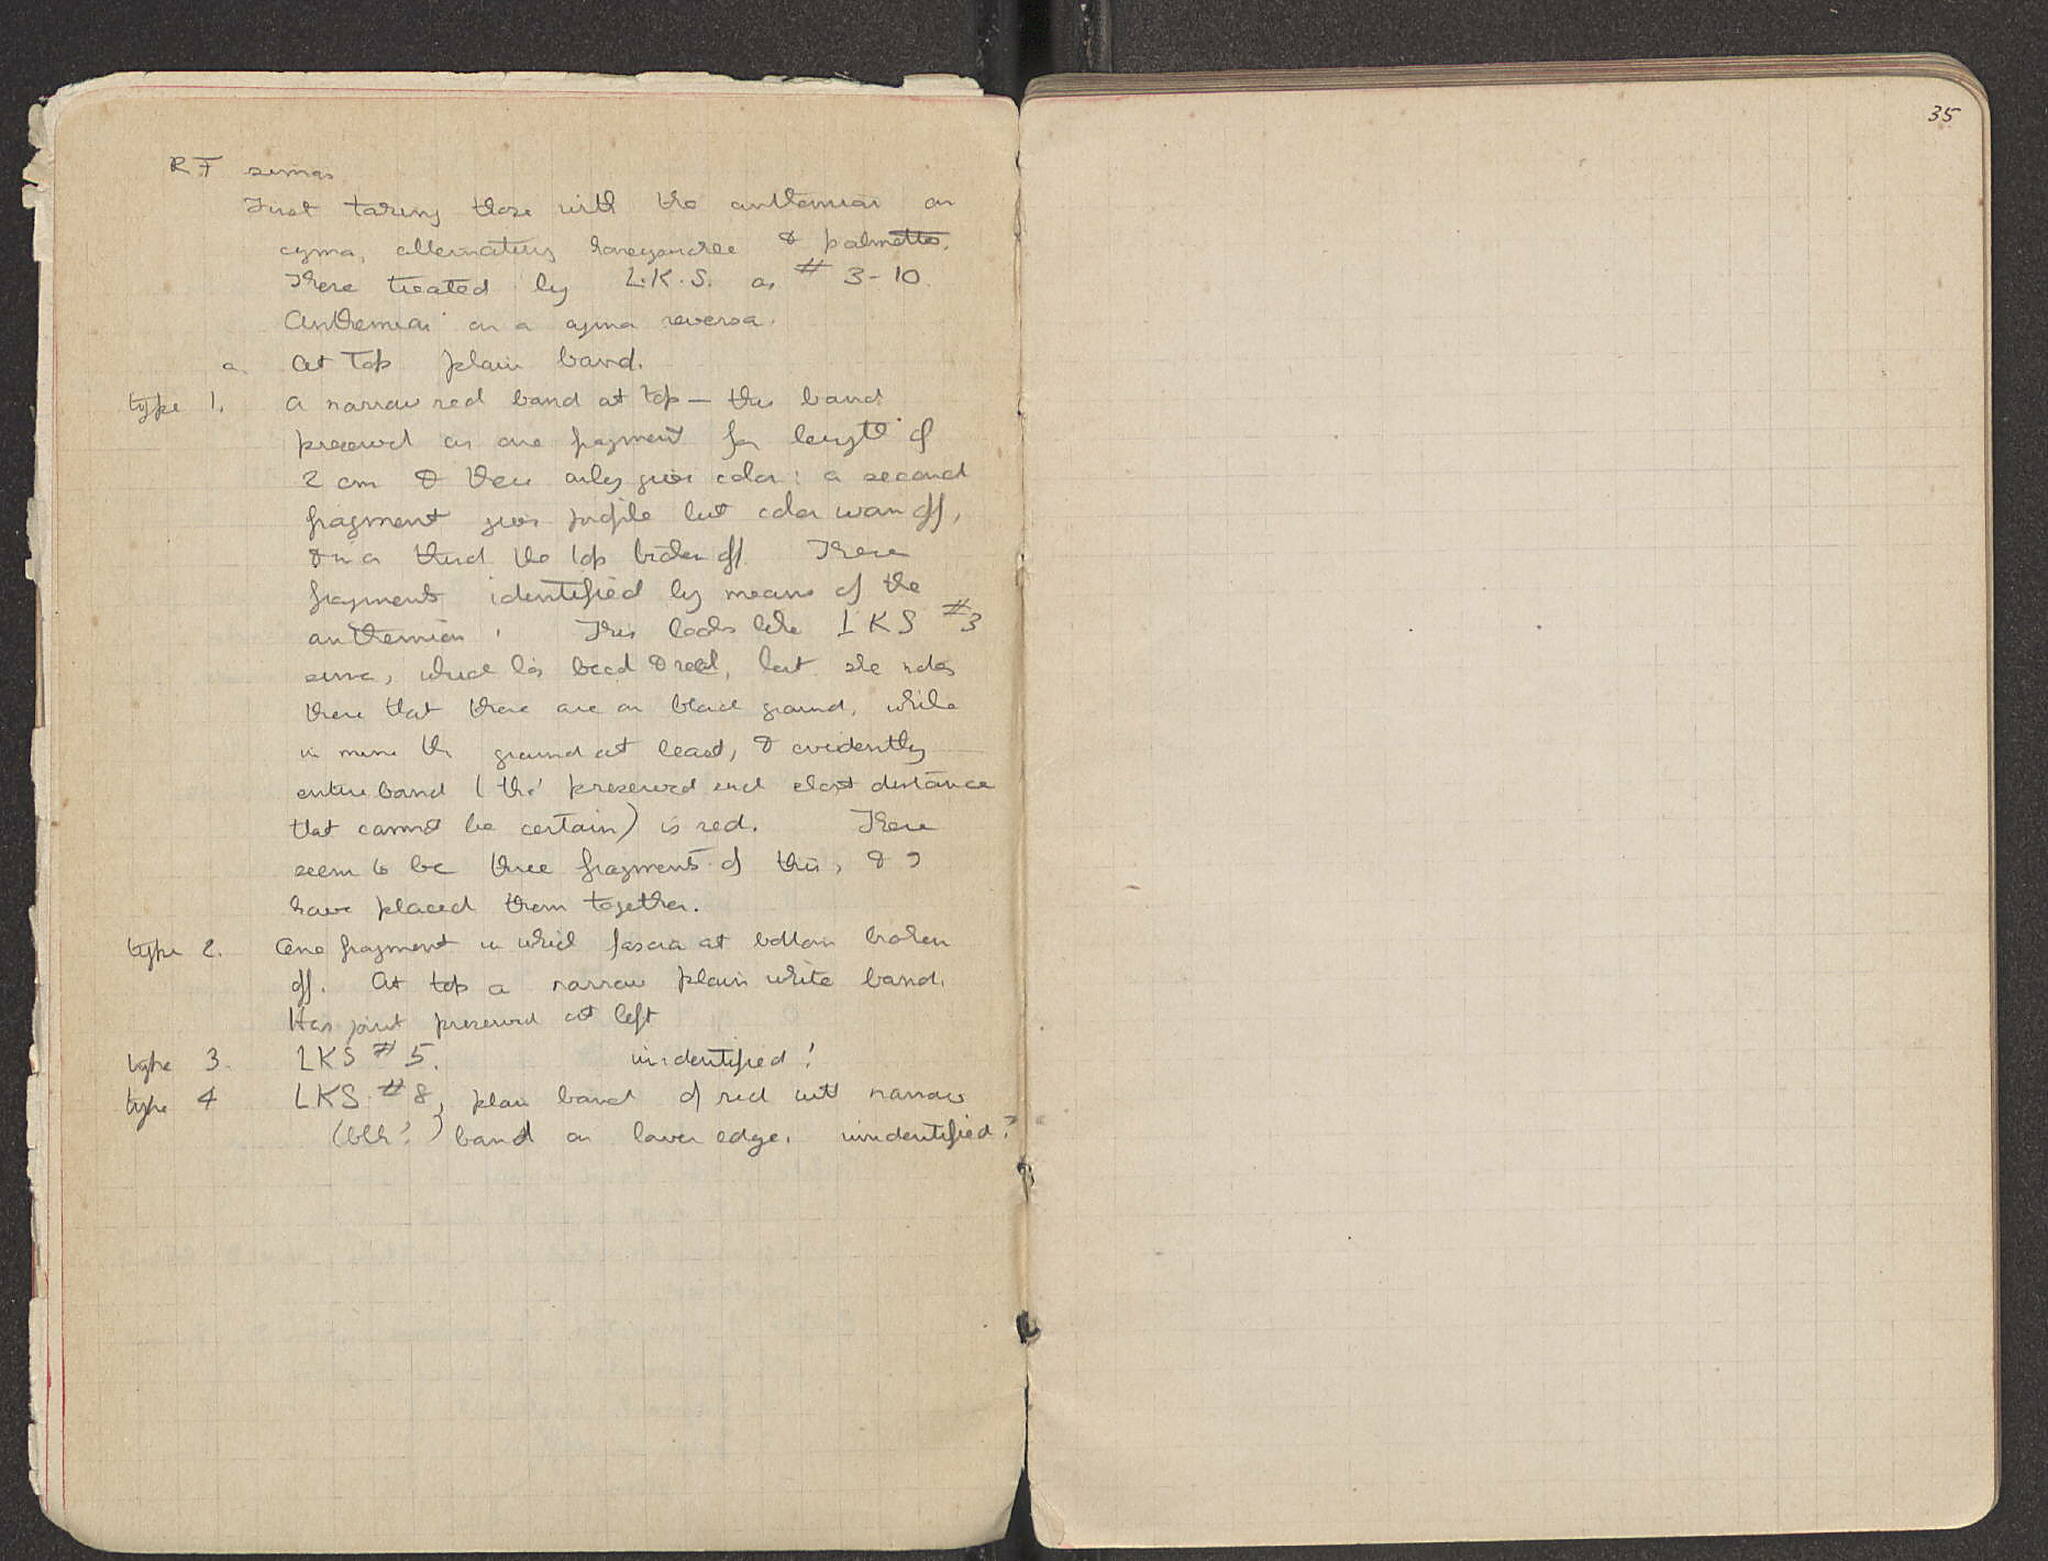 RF simas
First taking those with the anthemion on
cyma, alternating honeysuckle & palmette.
These treated by L.K.S. as # 3-10.
Anthemion on a cyma reversa.
a. At top plain band.
type 1. A narrow red band at top — this band
preserved on one fragment for length of
2 cm & there only gives color: a second
fragment gives profile but color worn off,
& in a third the top broken off. These
fragments identified by means of the
anthemion. This looks like LKS #3
sima, which has bead & reel, but she notes
there that these are on black ground, while
in mine the ground at least, & evidently
entire band (tho' preserved such short distance
that cannot be certain) is red. There
seem to be three fragments of this, & I
have placed them together.
type 2. One fragment in which fascia at bottom broken
off. At top a narrow plain white band.
Has joint preserved at left
type 3. LKS # 5. unidentified?
type 4 LKS # 8, plain band of red with narrow
(blk?) band on lower edge. unidentified?
35